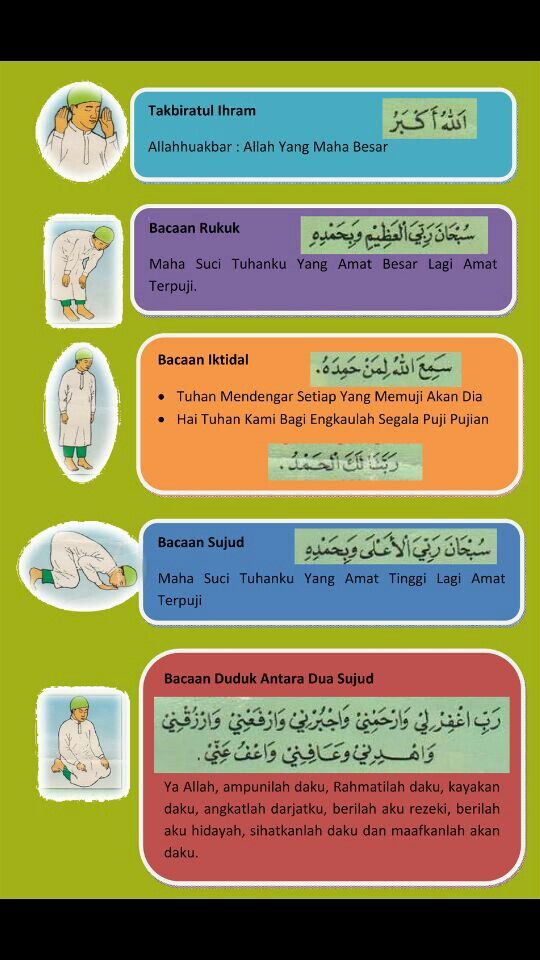 Takbiratul Ihram
اَللهُ اَكْبَرُ
Allahhuakbar : Allah Yang Maha Besar
Bacaan Rukuk
سُبْحَانَ رَبِّيَ الْعَظِيْمِ وَبِحَمْدِهِ
Maha Suci Tuhanku Yang Amat Besar Lagi Amat
Terpuji.
Bacaan Iktidal
سَمِعَ اللهُ لِمَنْ حَمِدَهُ.
• Tuhan Mendengar Setiap Yang Memuji Akan Dia
• Hai Tuhan Kami Bagi Engkaulah Segala Puji Pujian
رَبَّنَا لَكَ الْحَمْدُ.
Bacaan Sujud
سُبْحَانَ رَبِّيَ الْأَعْلَى وَبِحَمْدِهِ
Maha Suci Tuhanku Yang Amat Tinggi Lagi Amat
Terpuji
Bacaan Duduk Antara Dua Sujud
رَبِّ اغْفِرْ لِي وَارْحَمْنِيْ وَاجْبُرْنِيْ وَارْفَعْنِيْ وَارْزُقْنِيْ
وَاهْدِنِيْ وَعَافِنِيْ وَاعْفُ عَنِّيْ.
Ya Allah, ampunilah daku, Rahmatilah daku, kayakan
daku, angkatlah darjatku, berilah aku rezeki, berilah
aku hidayah, sihatkanlah daku dan maafkanlah akan
daku.